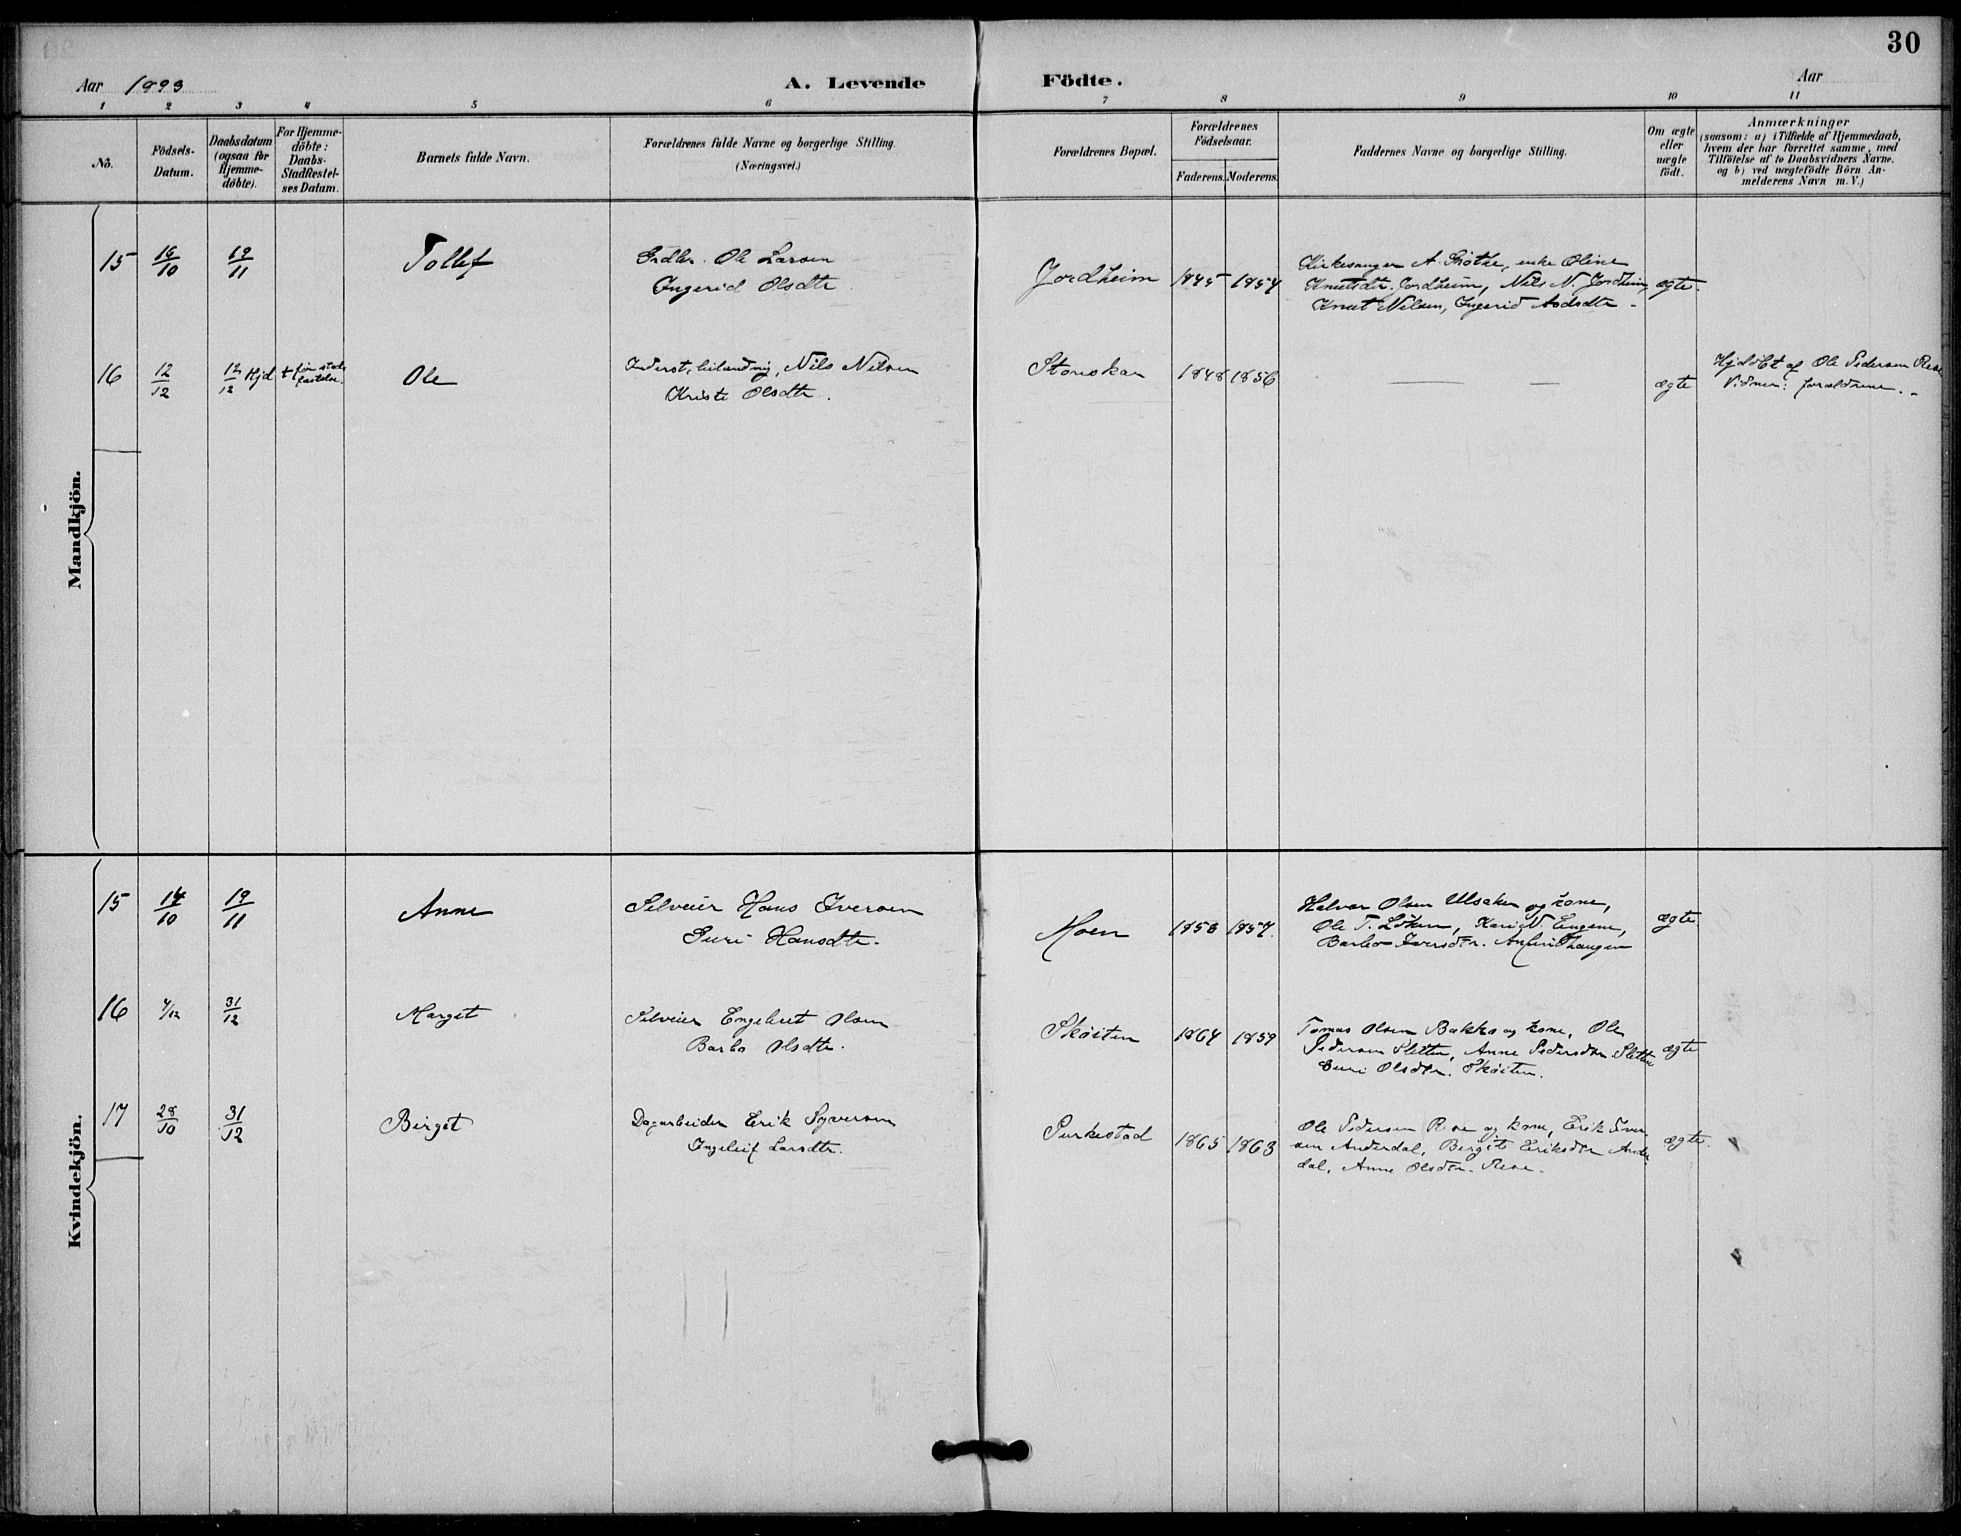 30
Aar 1893 A. Levende Födte. Aar
1 2 3 4 5 6 7 8 9 10 11
Nô. Födsels-Datum. Daabsdatum (ogsaa for Hjemme-döbte). For Hjemme-döbte: Daabs-Stadfæstel-ses Datum. Barnets fulde Navn. Forældrenes fulde Navne og borgerlige Stilling. (Næringsvei.) Forældrenes Bopæl. Forældrenes Födselsaar. Faderens. Moderens. Faddernes Navne og borgerlige Stilling. Om ægte eller uægte födt. Anmærkninger (saasom: a) i Tilfælde af Hjemmedaab, hvem der har forrettet samme, med Tilföielse af to Daabsvidners Navne. og b) ved uægtefödte Börn An-melderens Navn m. V.)
Mandkjön.
15 16/10 19/11 Tollef Ole Larsen
Ingerid Olsdtr Jordheim 1845 1854 Kirkesanger A. enke Oline
Knutsdtr. Jordheim, Nils N. Jordheim, ægte.
Knut Nilsen, Ingerid
16 12/12 12/12 Hjd † før stad-fæstelse. Ole Inderst, Nils Nilsen
Kristi Olsdtr. 1848 1856 — — ægte Hjdöbt af Ole Pedersen
Vidner: forældrene.
Kvindekjön.
15 14/10 19/11 Anne Selveier Hans Iversen
Guri Hansdtr. Moen 1856 1857. Halvor Olsen Ulsaker og kone,
Ole T. Löken, Kari N. Engene, ægte.
Barbo Iversdtr.
16 4/12 31/12 Margit Selveier Engebret Olsen
Barbo Olsdtr. Skøiten 1864 1859 Tomas Olsen Bakko og kone, Ole
Pedersen Sletten, Anne Pedersdtr Sletten ægte
Guri Olsdtr. Skøiten.
17 28/10 31/12 Birgit Dagarbeider Erik Syversen
Ingeleif Larsdtr. 1865 1863 Ole Pedersen og kone, Erik Iver-
sen Anderdal, Birgit Eriksdtr Ander- ægte.
dal, Anne Olsdtr.